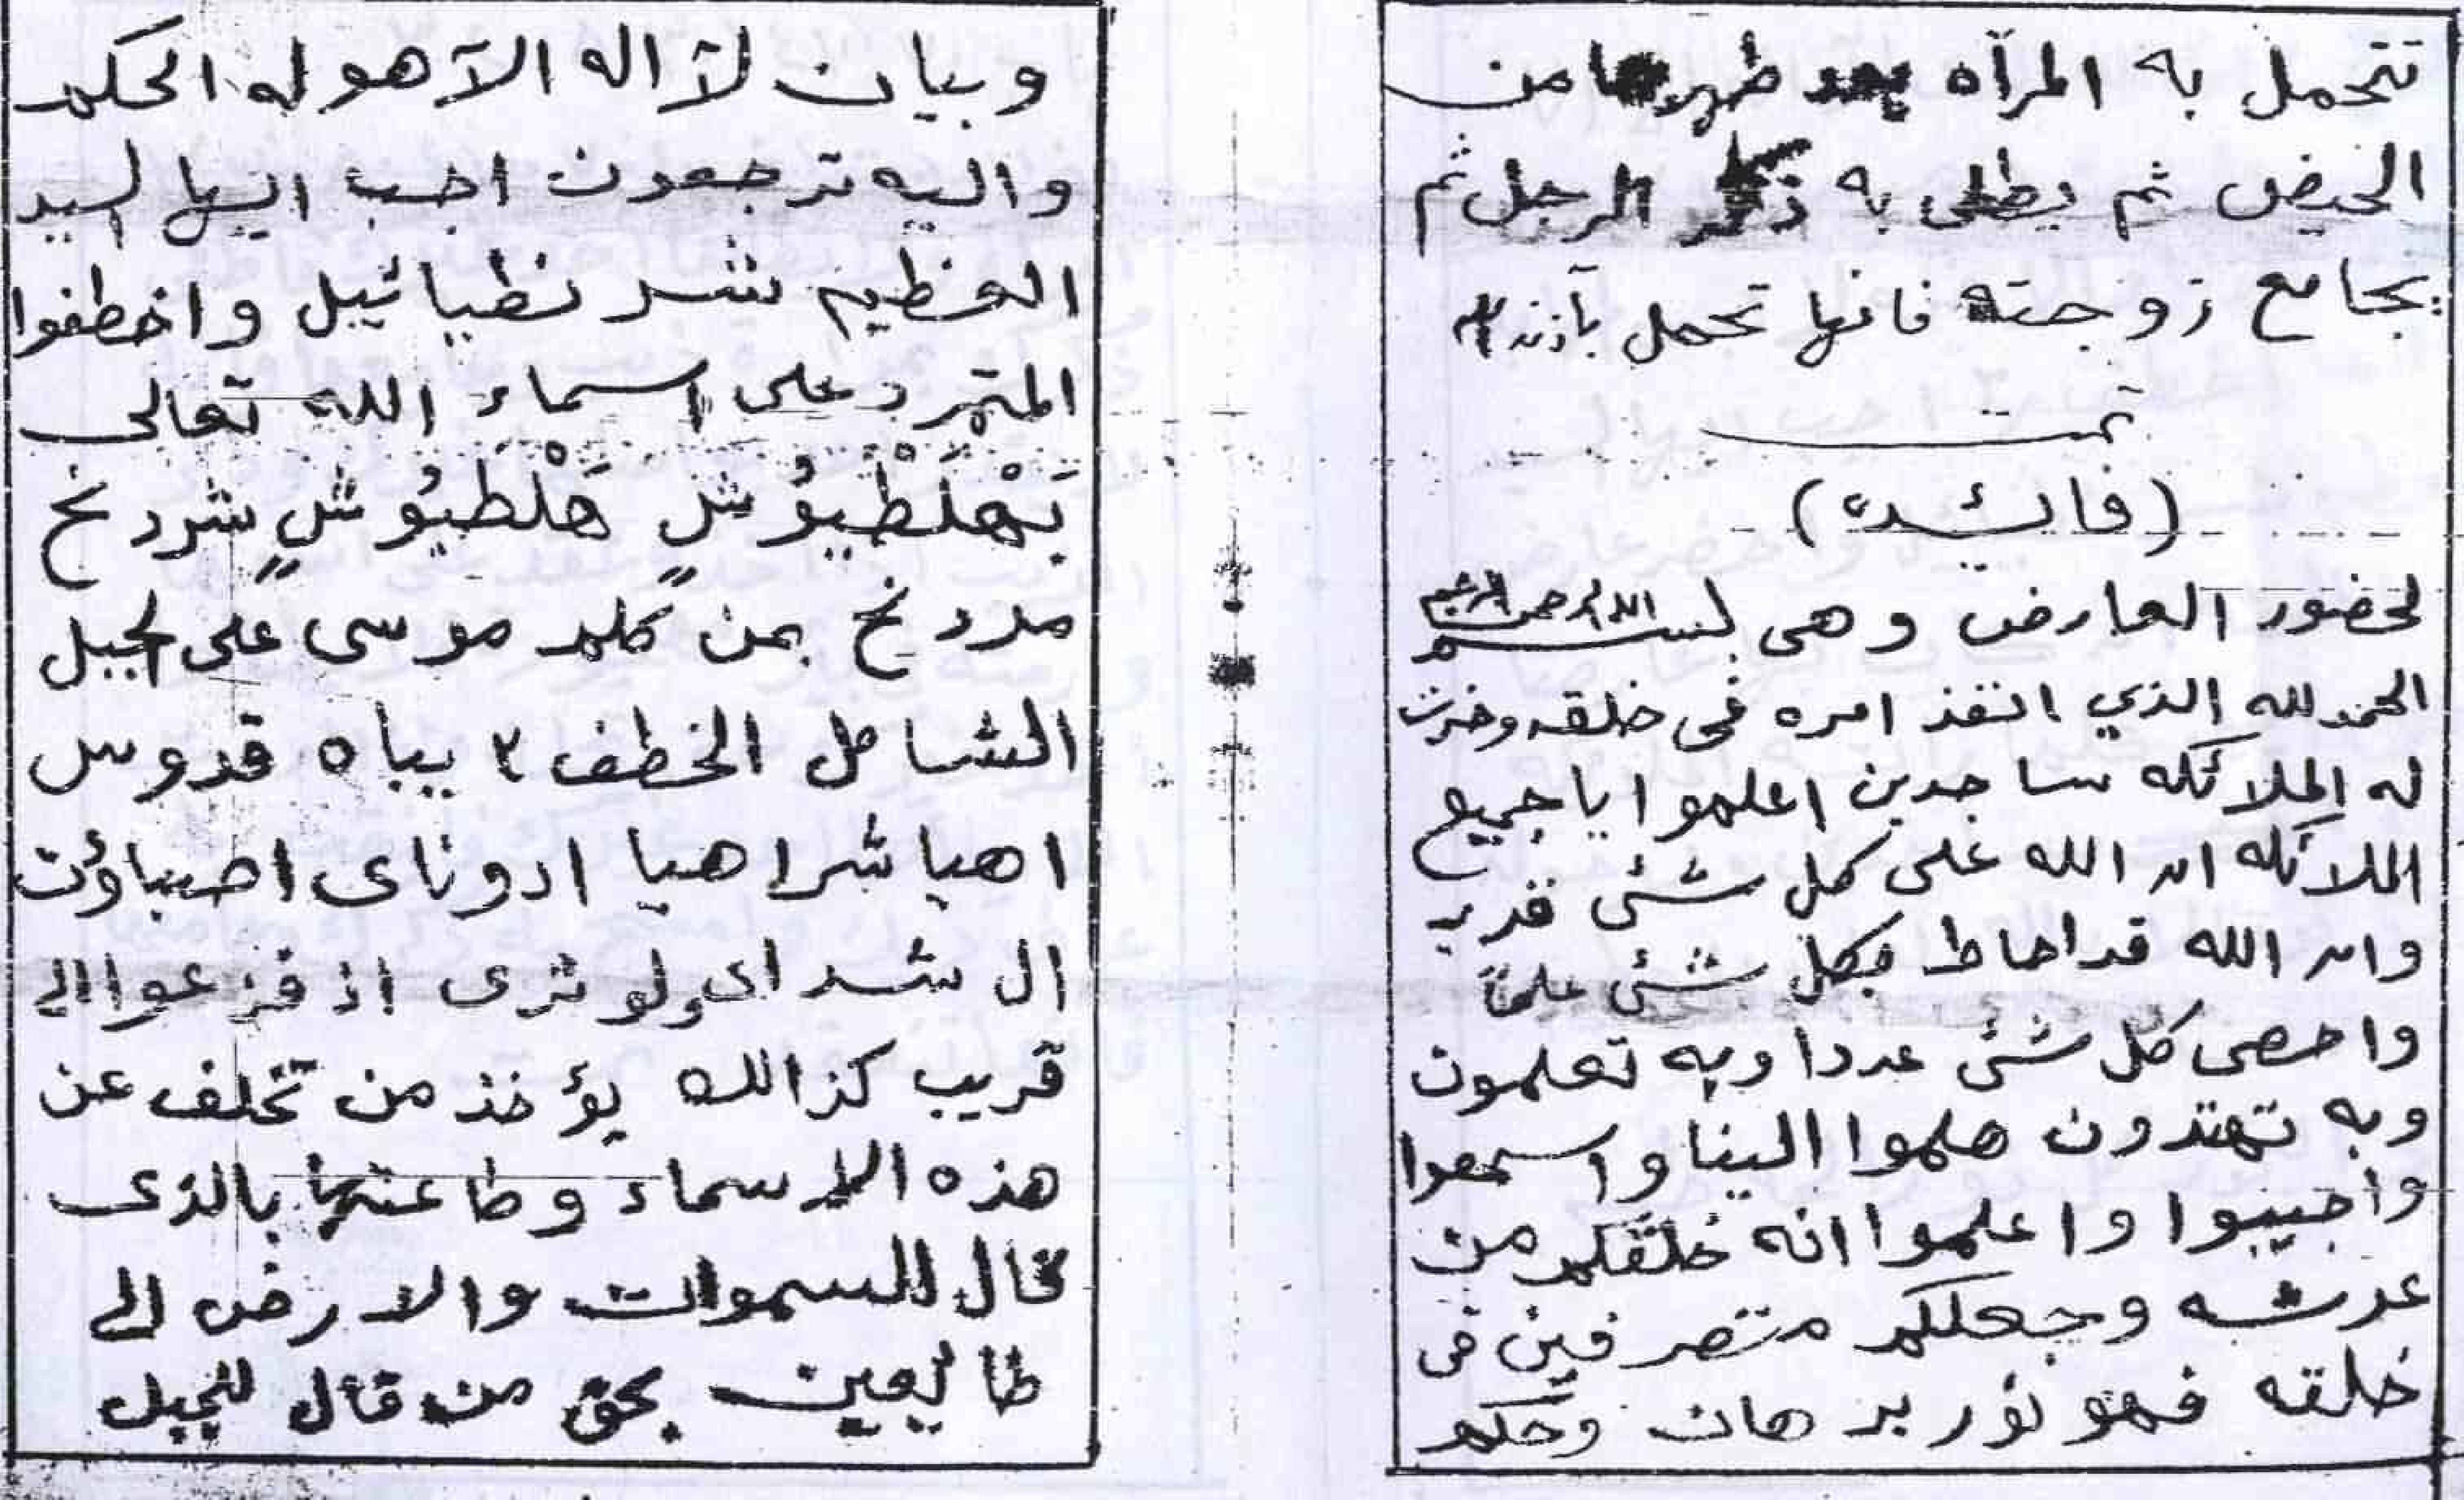 تتحمل به المرآه بعد طهرها من
الحيض ثم يطلى به ذكر الرجل ثم
يجامع زوجته فانها تحمل بآذن الله
تمت
(فائده)
لحضور العارض وهى بسم الله الرحمن الرحيم
الحمد لله الذي انفذ امره فى خلقه وخرت
له الملائكه ساجدين اعلموا يا جميع
الملائكه ان الله على كل شئى قدير
وان الله قد احاط بكل شئى علماً
واحصى كل شئى عددا وبه تعلمون
وبه تهتدون هلموا الينا واسمعوا
واجيبوا واعلموا انه خلقكم من
عرشه وجعلكم متصرفين فى
خلقه فهو نور برهان وحكم
وبيان لآ اله الآ هو له الحكم
واليه ترجعون اجب ايها السيد
العظيم شر نطيائيل واخطفوا
المتمرد على اسماء الله تعالى
بَهْلَطْيُوشٍ هَلْطَيُوشٍ شردنخ
مردنخ بمن كلم موسى على الجبل
الشامل الخطف ٢ يباه قدوس
اهيا شراهيا ادوناى اصباؤت
ال شداى ولو ترى اذ فزعوا الى
قريب كذالك يؤخذ من تخلف عن
هذه الاسماء وطاعتها بالذى
قال للسموات والارض الى
طائعين بحق من قال للجبل